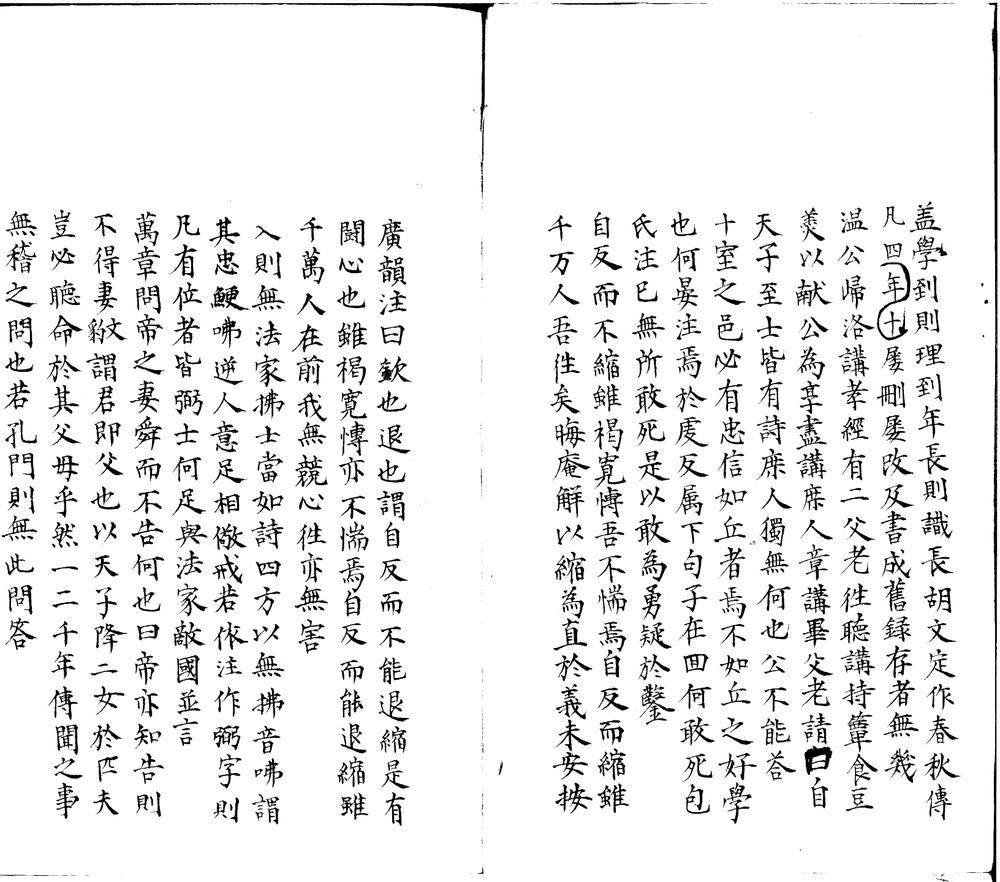 盖學到則理到年長則識長胡文定作春秋傳
凡四年十屡刪屡改及書成舊録存者無㡬
温公㱕洛講孝經有二父老徃聴講持簞食豆
羮以献公為享盡講庶人章講畢父老請曰自
天子至士皆有詩庶人獨無何也公不能荅
十室之邑必有忠信如丘者焉不如丘之好學
也何晏注焉於䖍反属下句子在囬何敢死包
氏注已無所敢死是以敢為勇疑於鑿
自反而不縮雖褐寛愽吾不惴焉自反而縮雖
千万人吾徃矣晦庵解以縮為直於義未安按
廣韻注曰歛也退也謂自反而不能退縮是有
闘心也雖褐寛愽亦不惴焉自反而能退縮雖
千萬人在前我無競心徃亦無害
入則無法家拂士當如詩四方以無拂音咈謂
其忠鯁咈逆人意足相儆戒若依注作弼字則
凡有位者皆弼士何足與法家敵國並言
萬章問帝之妻舜而不告何也曰帝亦知告則
不得妻謂君即父也以天子降二女於匹夫
豈必聴命於其父母乎然一二千年傳聞之事
無稽之問也若孔門則無此問荅